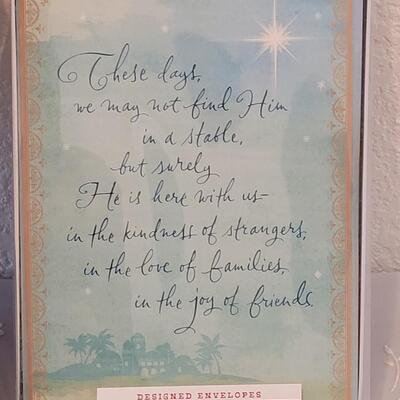 These days,
we may not find Him
in a stable,
but surely
He is here with us–
in the kindness of strangers,
in the love of families,
in the joy of friends.
DESIGNED ENVELOPES